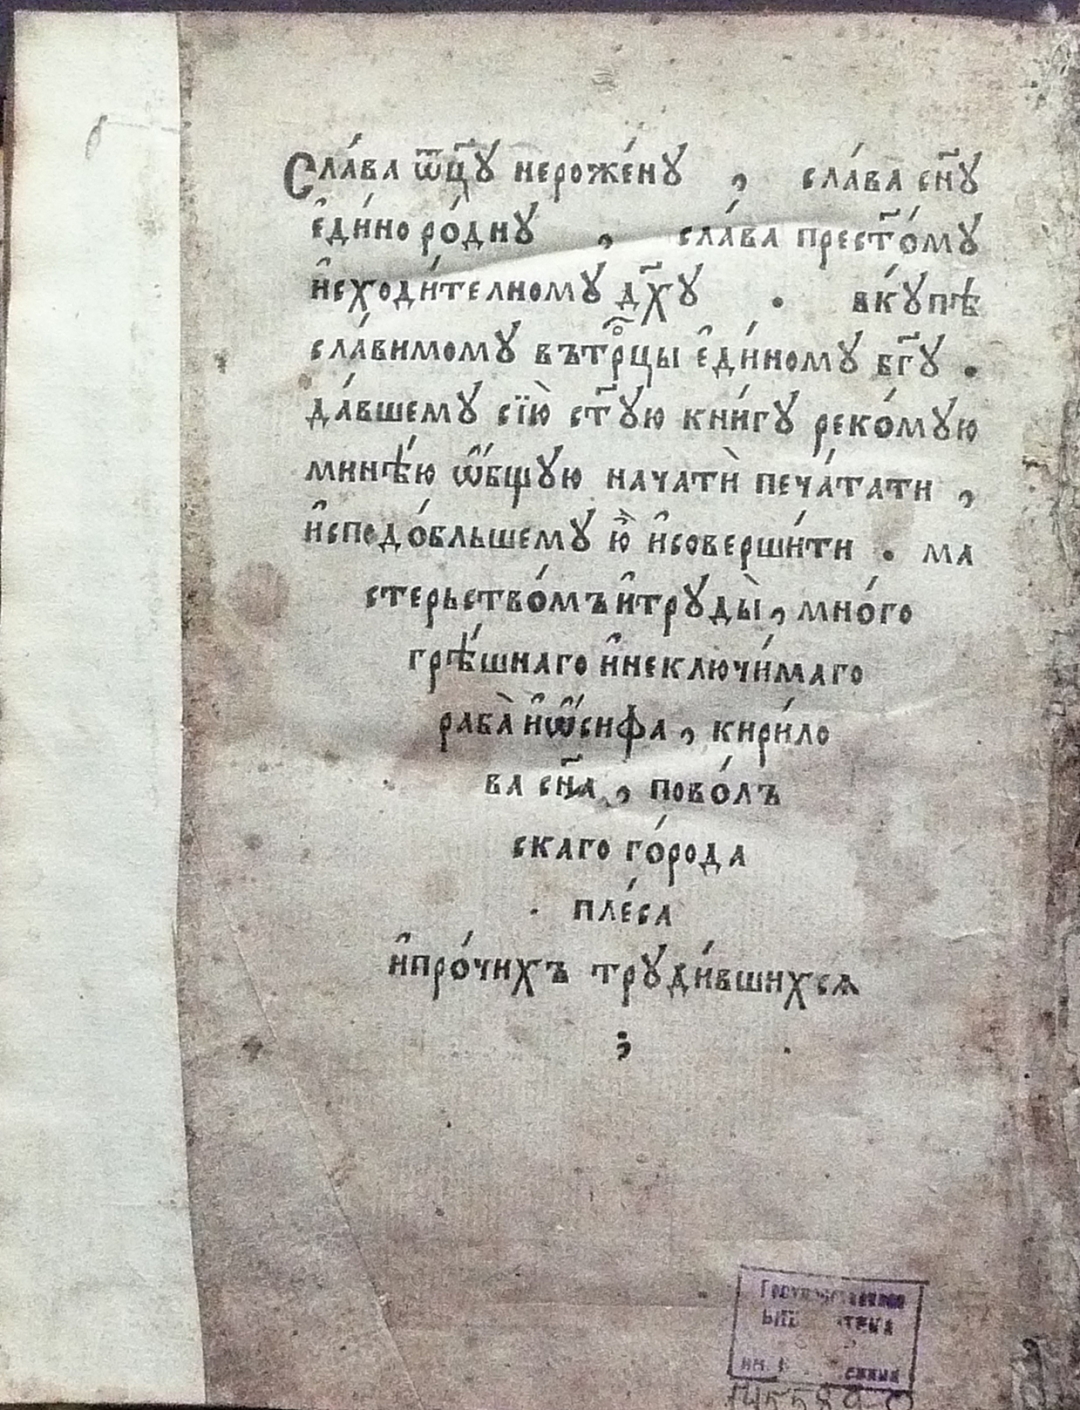 Сла́ва ѿц҃ꙋ нероже́нꙋ , сла́ва сн҃ꙋ
е҆ди́но ро́днꙋ , сла́ва прест҃о́мꙋ
и҆сходи́телномꙋ дх҃ꙋ . вкꙋ́пѣ
сла́вимомꙋ вътрⷪ҇цы е҆ди́номꙋ бг҃ꙋ .
да́вшемꙋ сїю̀ ст҃ꙋю кни́гꙋ реко́мꙋю
минѣ́ю ѻ҆́бщꙋю начати̇̀ печа́тати ,
и҆сподо́бльшемꙋ ю҆̀ и҆соверши́ти . ма
стерьство́мъ и҆трꙋды̀ , мно́го
грѣ́шнаго и҆неключи́маго
раба̀ и҆ѡ҆́сифа , кири́ло
ва сн҃а , пово́лъ
скаго го́рода
пле́са
и҆про́чихъ трꙋди́вшихсѧ
;
Государственная
библиотека
145589-0